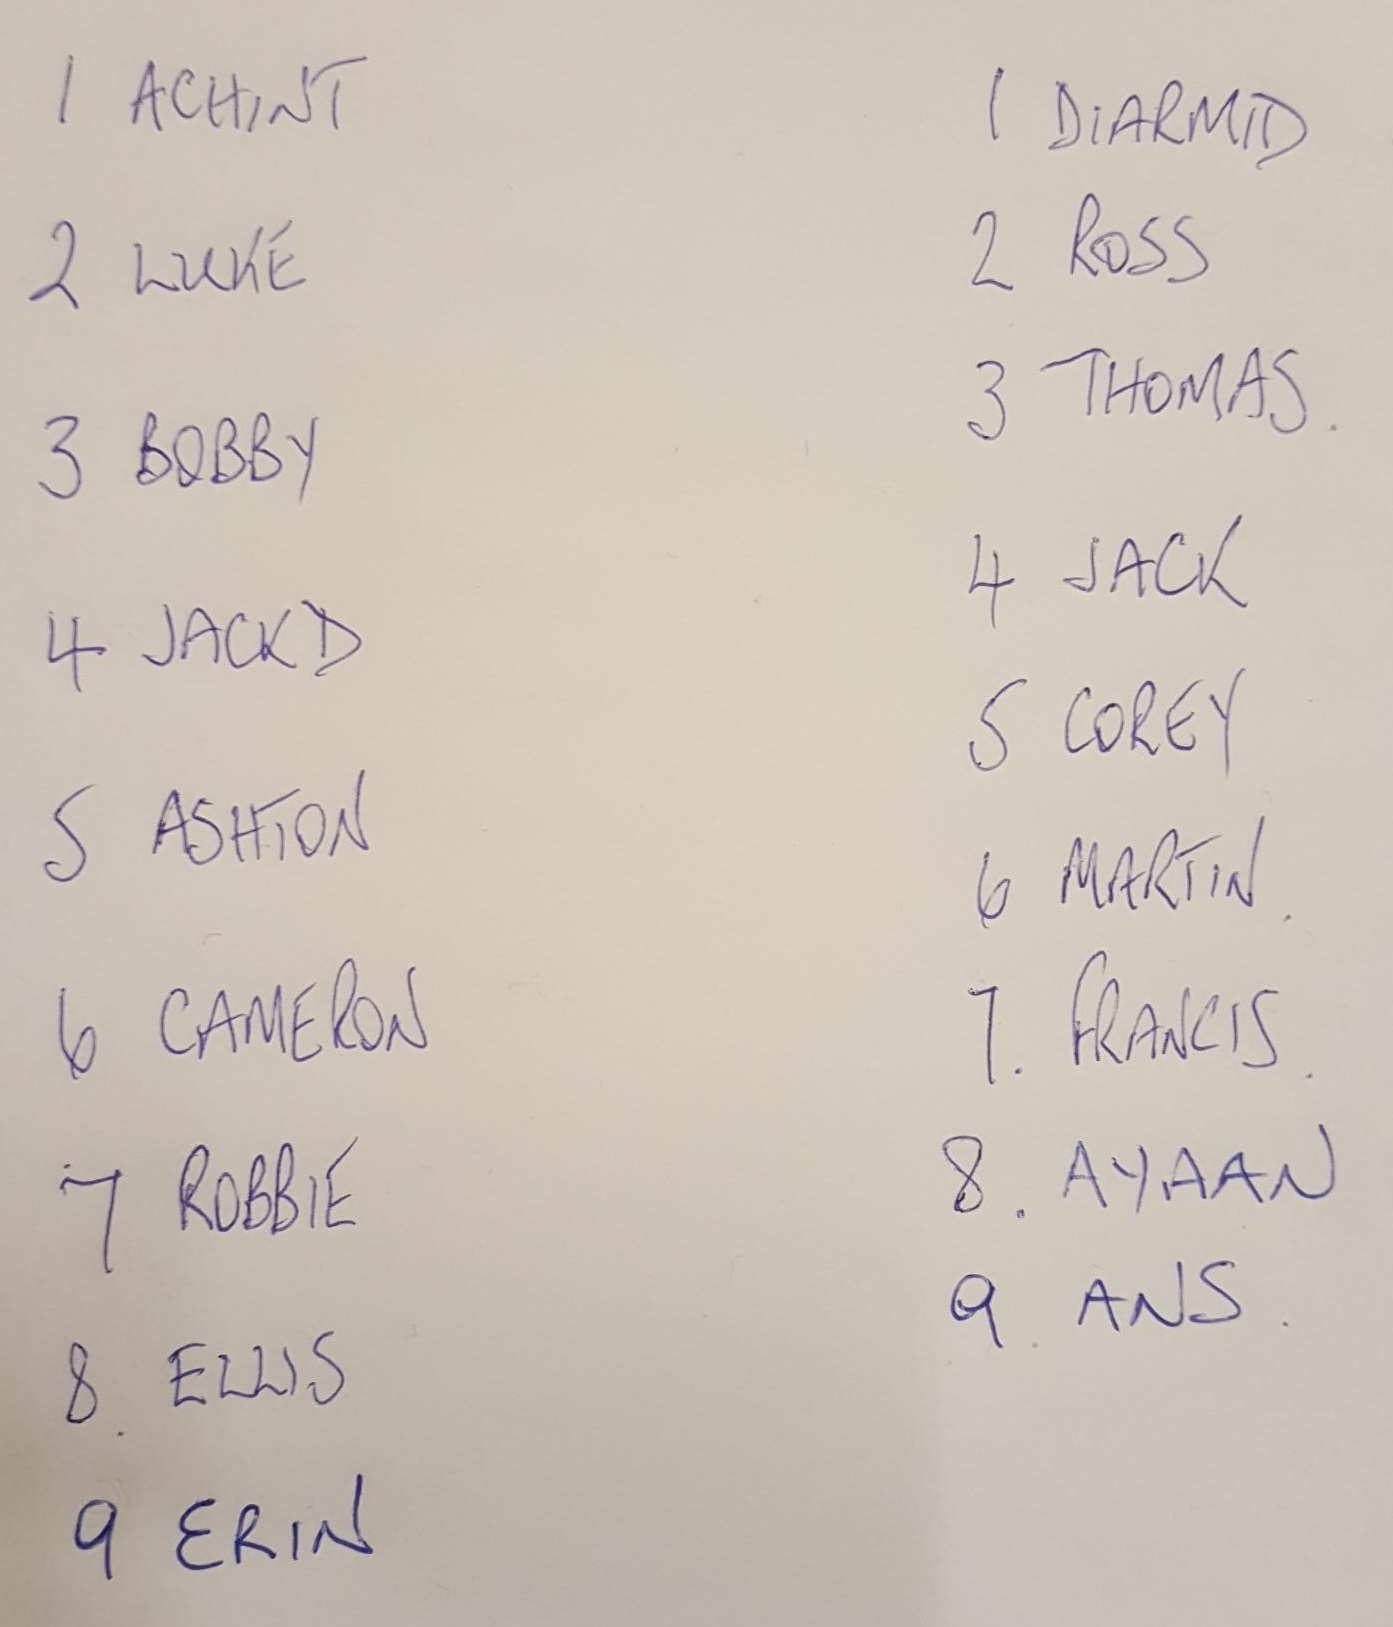 1 ACHINT
2 LUKE
3 BOBBY
4 JACK D
5 ASHTON
6 CAMERON
7 ROBBIE
8. ELLIS
9 ERIN
1 DIARMID
2 ROSS
3 THOMAS.
4 JACK
5 COREY
6 MARTIN.
7. FRANCIS.
8. AYAAN
9. ANS.